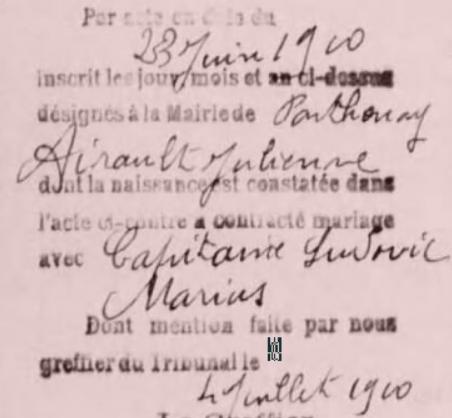 Par acte en date du
23 Juin 1910
inscrit les jour, mois et an ci-dessus
désignés à la Mairie de Parthenay
Airault Julienne
dont la naissance est constatée dans
l'acte ci-contre a contracté mariage
avec Capitaine Ludovic
Marius
Dont mention faite par nous
greffier du Tribunal le
4 Juillet 1910
Le Greffier